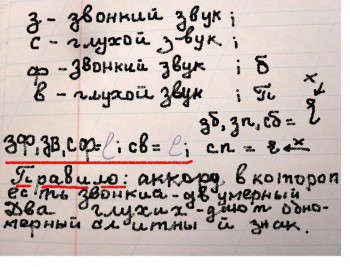 з - звонкий звук ;
с - глухой звук ;
ф - звонкий звук ; б
в - глухой звук ; п
х
зб, зп, сб =
зф, зв, сф = ; св = ; сп = х
Правило: аккорд, в котором
есть звонкий - двумерный
Два глухих - дают одно-
мерный слитный знак.